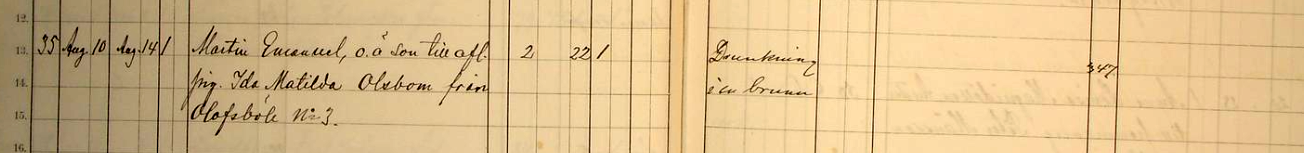 12.
13. 35 Aug. 10 Aug. 14 1 Martin Emanuel, o.ä son till afl. 2 22 1 Drunkning 347
14. pig. Ida Matilda Olsbom från i en brunn
15. Olofsböle No 3.
16.